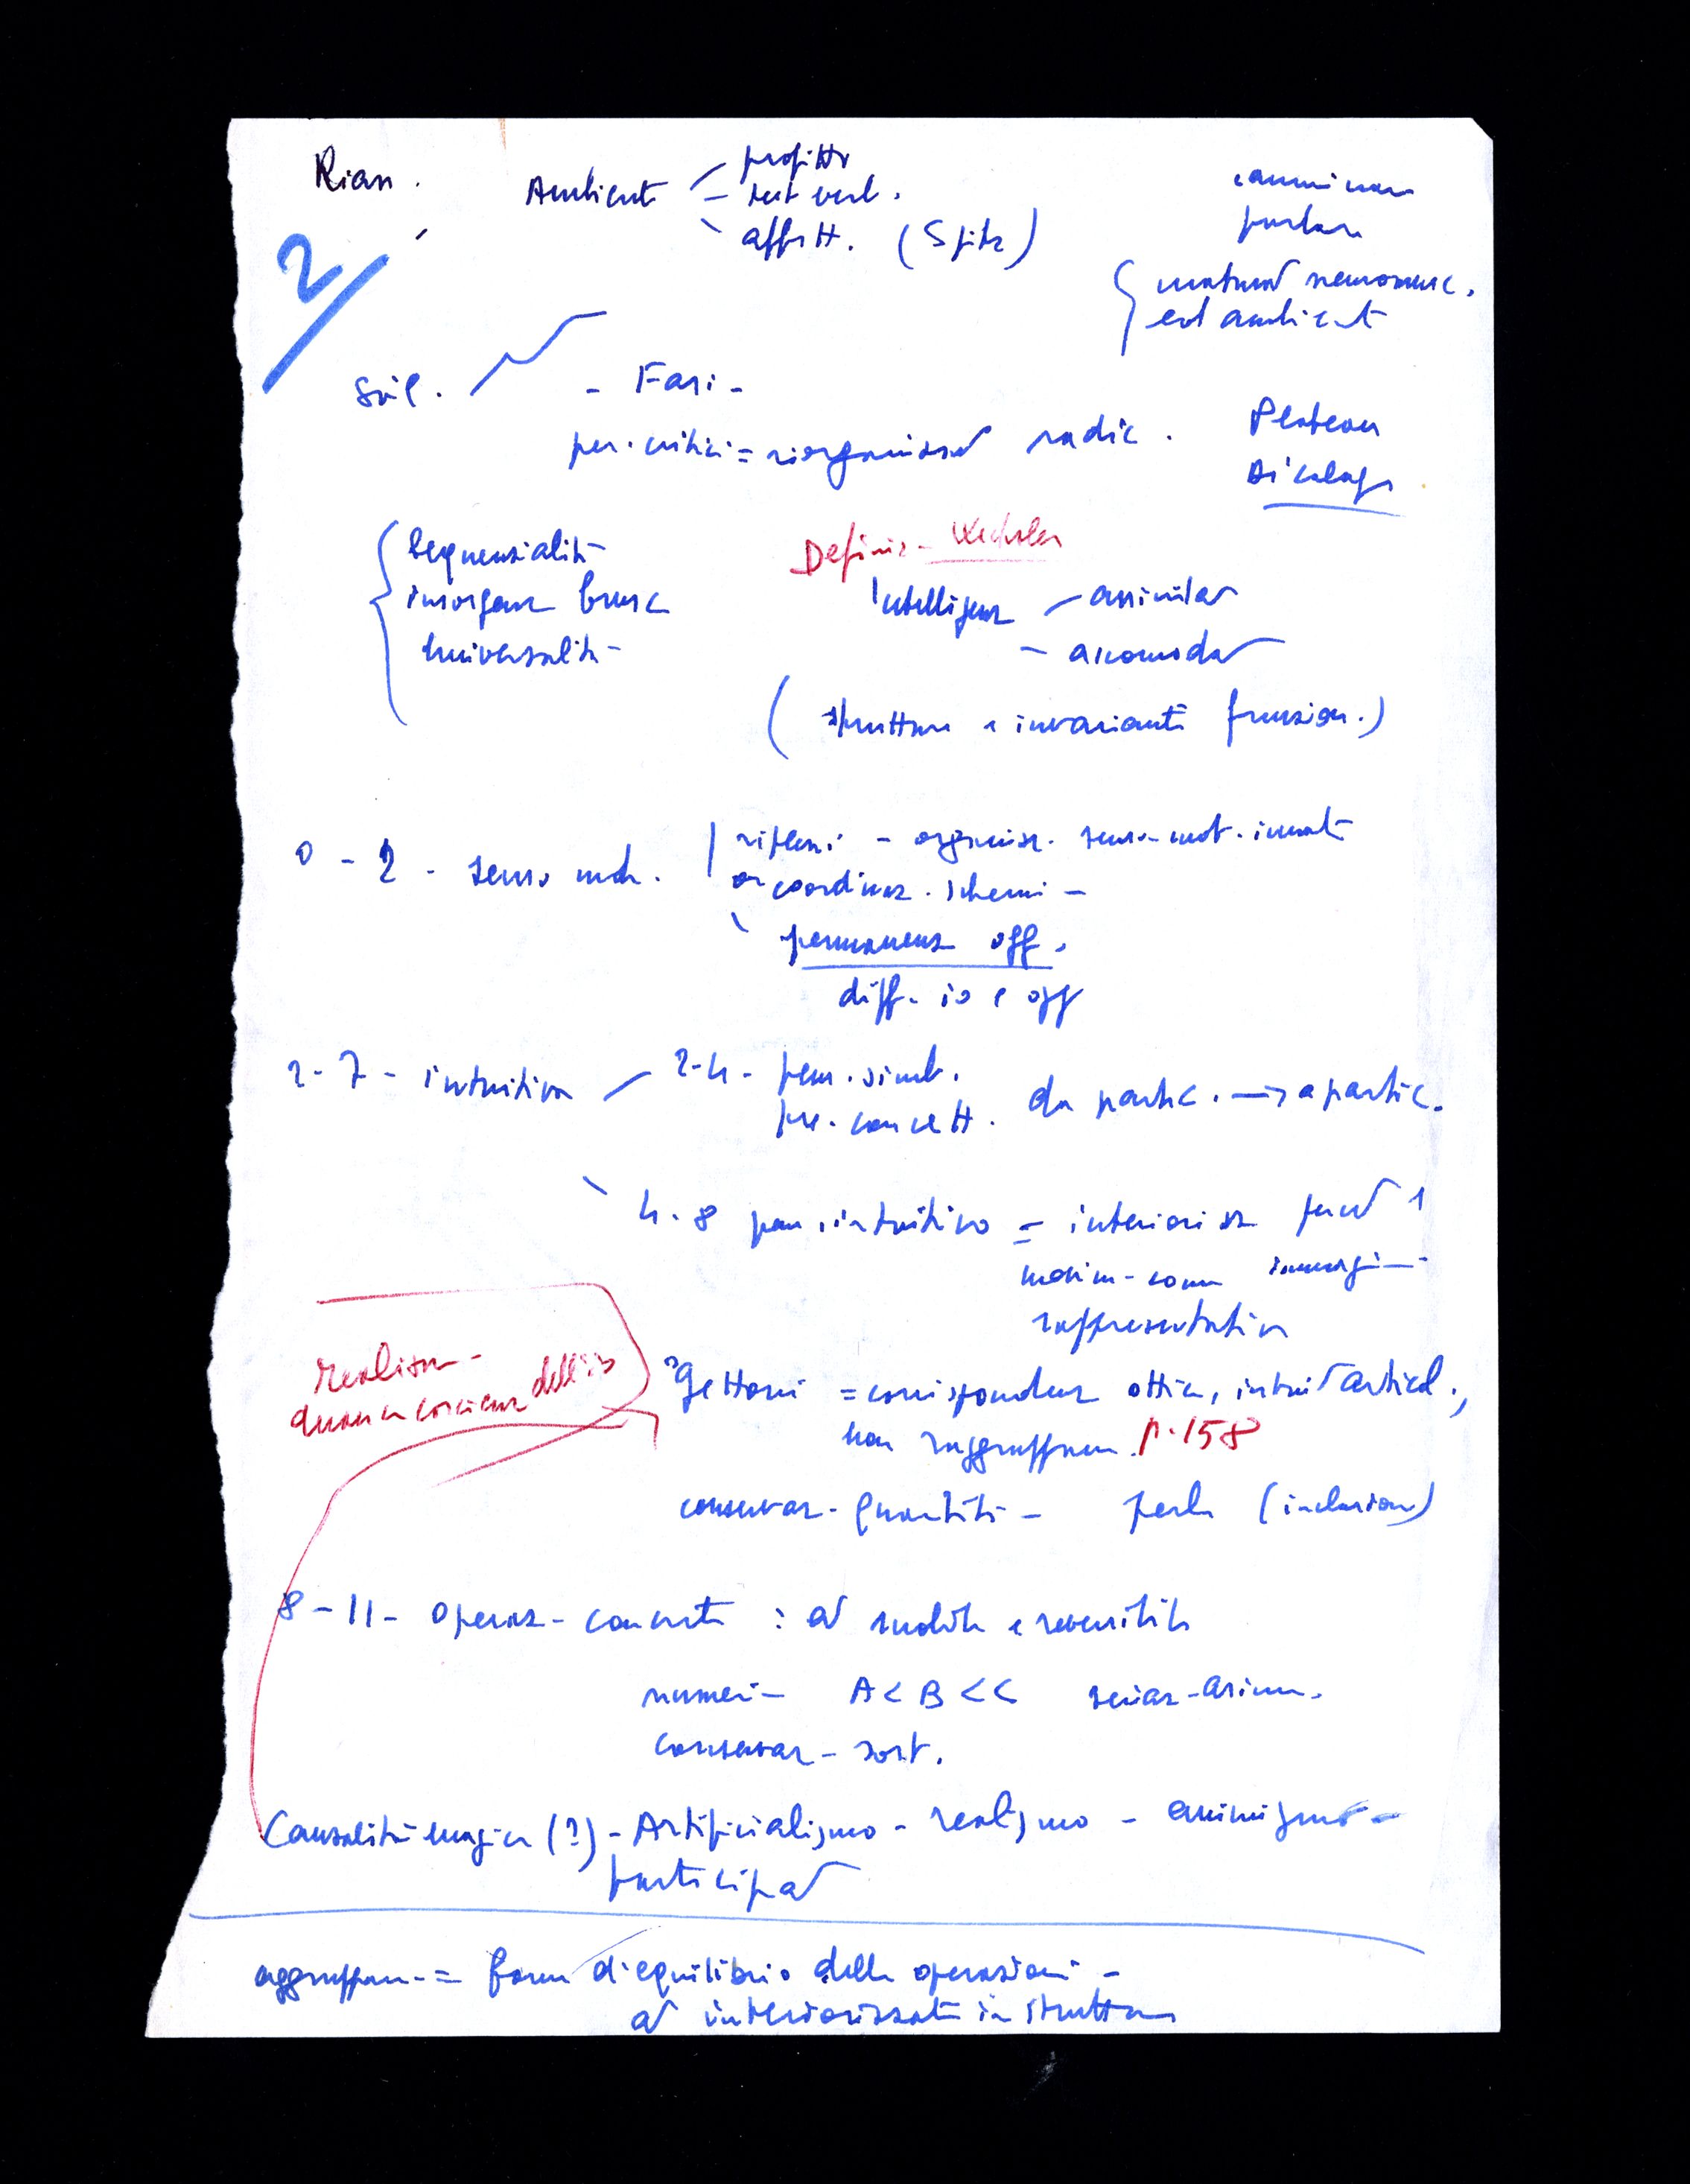 Rian.
Ambient
profitto
test verb.
affett. (Spitz)
camminare
parlare
2
ed ambient
Svil.
- Fasi -
per. critici = riorganizzaz radic.
Plateau
Décalage
Sequenzialità
insorgenz brusc
Universalità
Definiz - Wechsler
Intelligenz - assimilaz
- accomodaz
(strutture e invarianti funzion.)
0 - 2 - senso mot.
riflessi - organizz. senso-mot. innat
coordinaz. schemi -
permanenz ogg.
diff. io e ogg
2 - 7 - intuitivo
2-4 - pens. simb.
pre. concett.
da partic. → a partic.
4 - 8 pens. intuitivo = interiorizz
immagin
rappresentativa
Realism -
dell'io
Gettoni = corrispondenz ottica, intuiz articol.,
non raggruppam. p. 158
conservaz - quantità - perle (inclusione)
8 - 11 - operaz - concrete : az mobili e reversibili
numeri - A < B < C seriaz - asimm.
conservaz - sost.
Causalità magica (?) - Artificialismo - realismo - animismo -
participaz
aggruppam - = forma d'equilibrio delle operazioni -
az interiorizzate in strutture